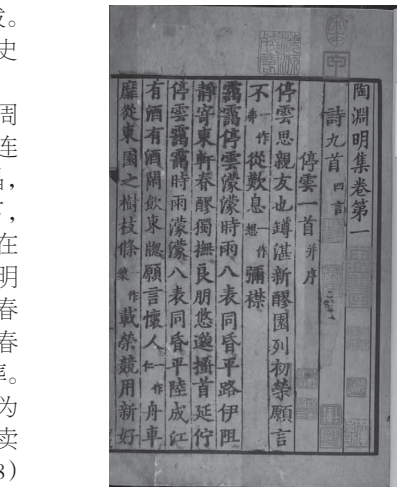 史
周
连
，
，
在
明
春
春
。
为
卖
8)
陶淵明集卷第一
詩九首四言
停雲一首并序
停雲思親友也罇湛新醪園列初榮願言
不一作弗從歎息一作想彌襟
靄靄停雲濛濛時雨八表同昏平路伊阻
靜寄東軒春醪獨撫良朋悠邈搔首延佇
停雲靄靄時雨濛濛八表同昏平陸成江
有酒有酒閒飲東牕願言懷人一作仁舟車
靡從東園之樹枝條一作載榮競用新好